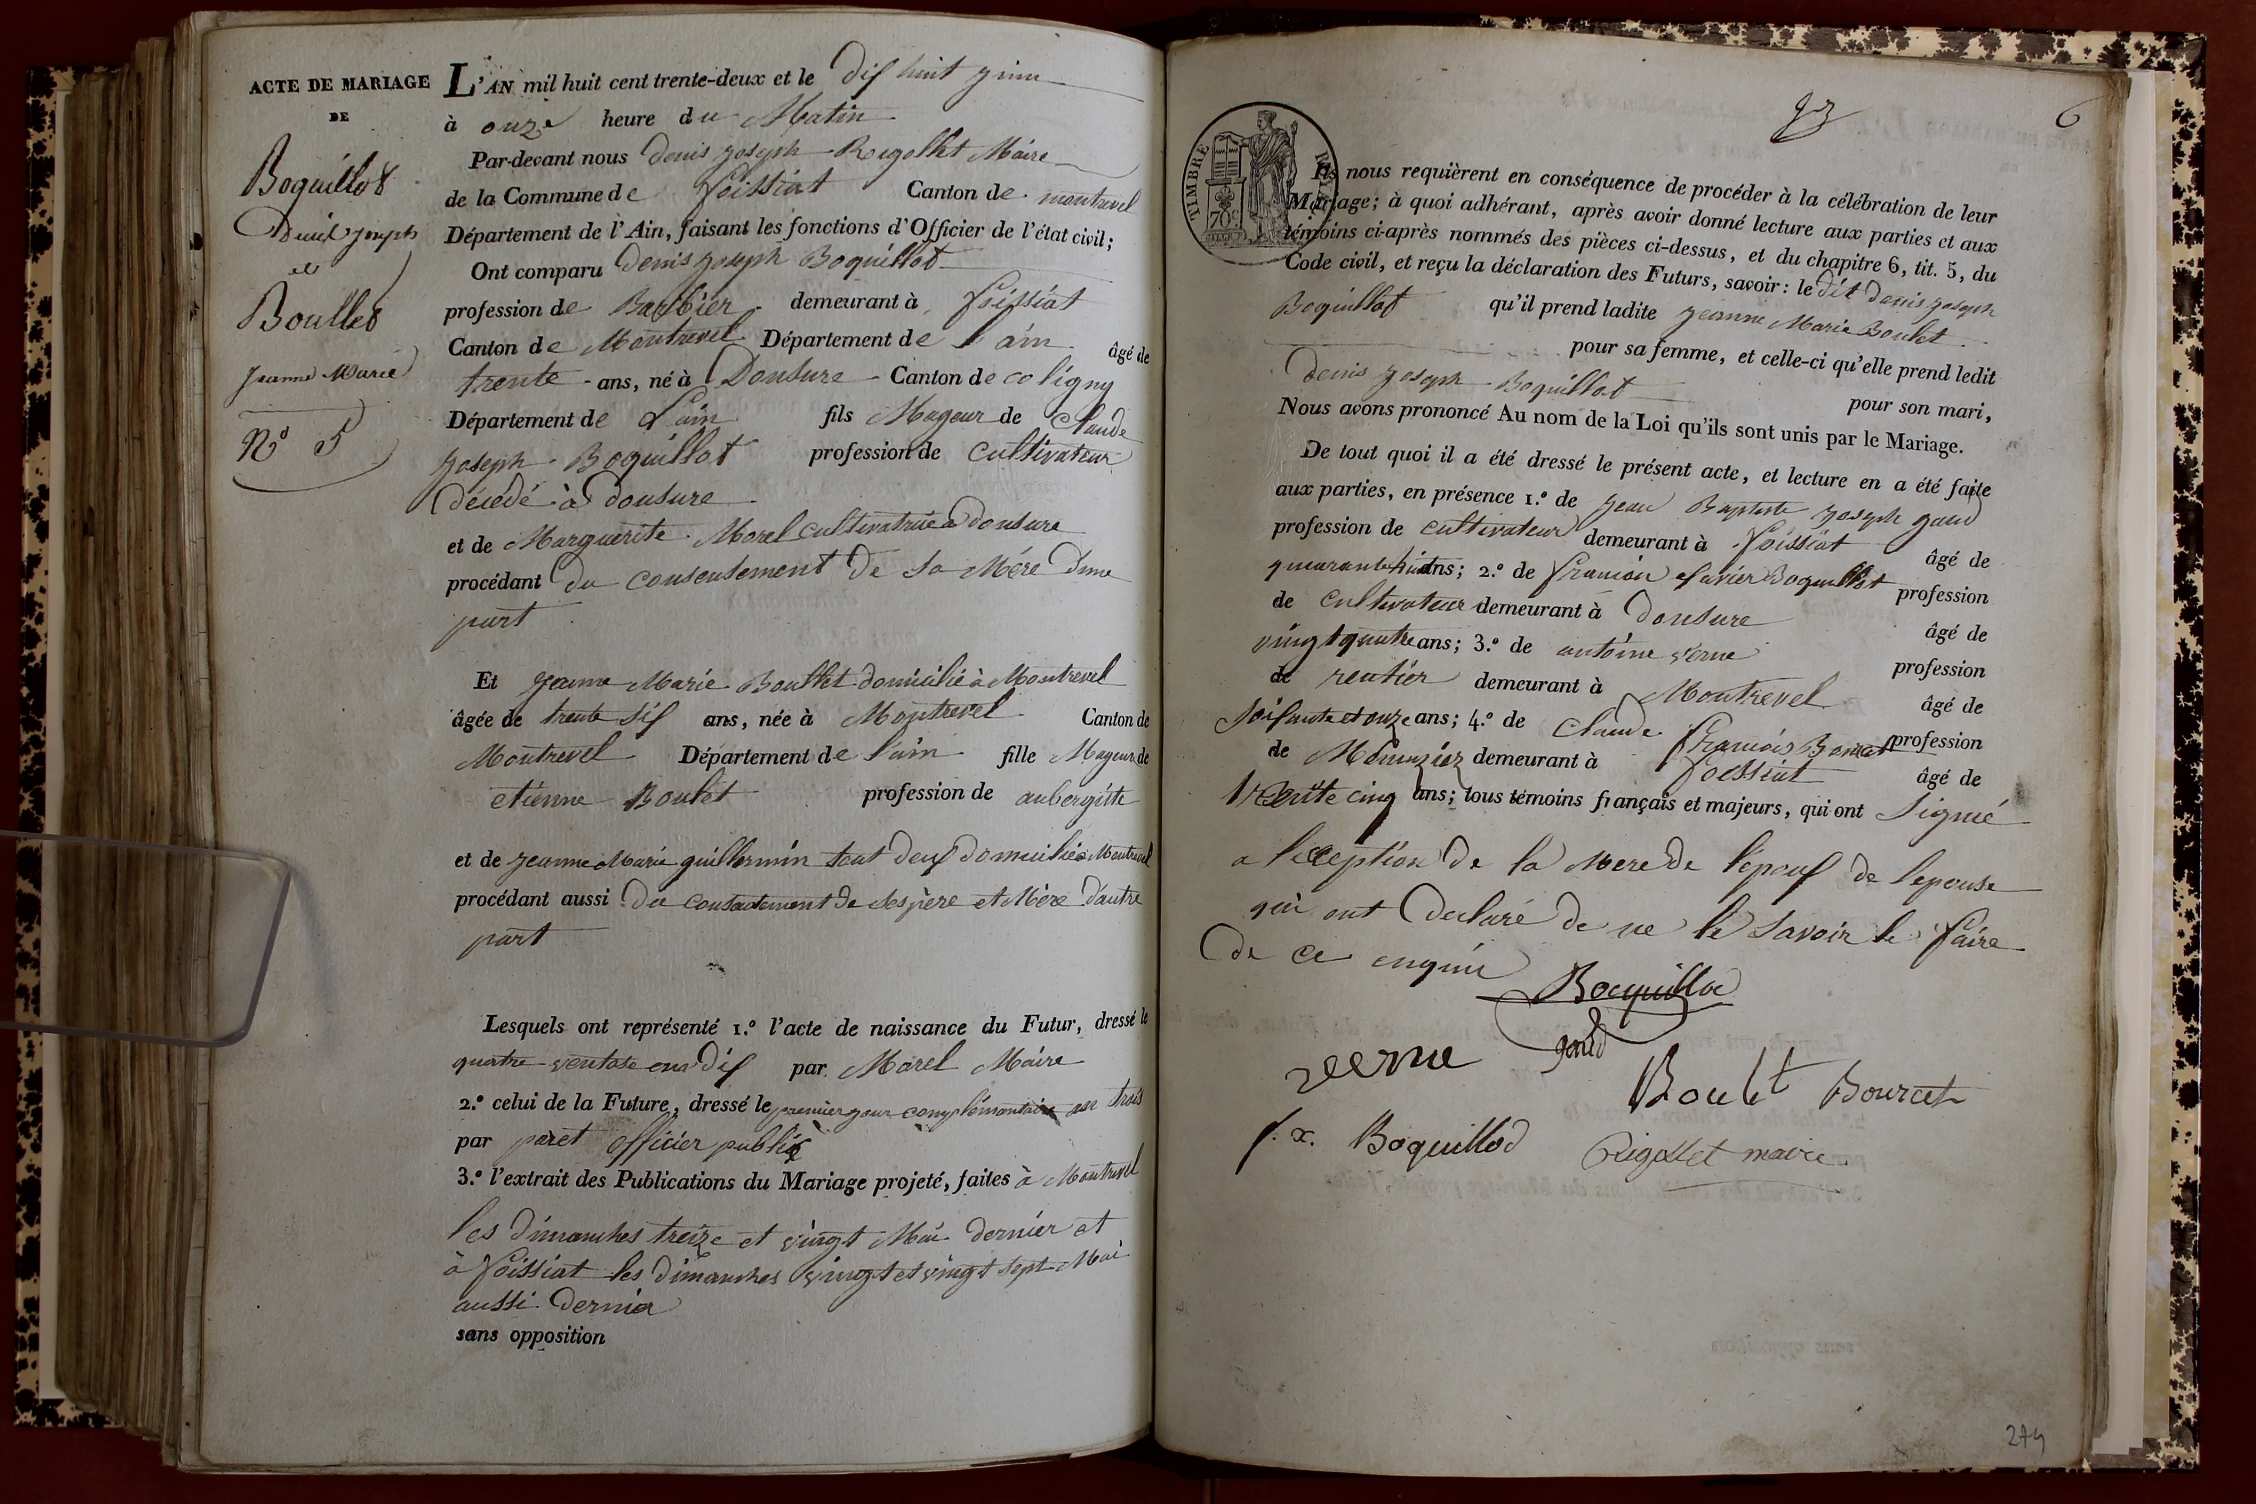 ACTE DE MARIAGE
DE
Boquillot
Denis Joseph
et
Boullet
Jeanne Marie
N° 5
L'AN mil huit cent trente-deux et le dix huit juin
à onze heure du Matin
Par-devant nous Denis Joseph Rigollet Maire
de la Commune de foissiat Canton de montrevel
Département de l'Ain, faisant les fonctions d'Officier de l'état civil;
Ont comparu Denis Joseph Boquillot
profession de Barbier demeurant à foissiat
Canton de Montrevel Département de l'ain âgé de
trente ans, né à Donsure Canton de coligny
Département de l'ain fils Mageur de Claude
Joseph Boquillot profession de cultivateur
décedé à donsure
et de Marguerite Morel cultivatrice a donsure
procédant du consensement de sa Mére d'une
part
Et Jeanne Marie Boullet domicilié à Montrevel
âgée de trente six ans, née à Montrevel Canton de
Montrevel Département de l'ain fille Mageur de
etienne Boulet profession de aubergiste
et de Jeanne Marie guillermin tout deux domiciliés a Montrevel
procédant aussi du consentement de ses père et Mère d'autre
part
Lesquels ont représenté 1.° l'acte de naissance du Futur, dressé le
quatre ventose en dix par Morel Maire
2.° celui de la Future, dressé le premier jour complémentaire an trois
par paret officier public
3.° l'extrait des Publications du Mariage projeté, faites à Montrevel
les dimanches treize et vingt Mai dernier et
à foissiat les dimanches vingt et vingt sept Mai
aussi dernier
sans opposition
6
TIMBRE ROYAL
70c
Ils nous requièrent en conséquence de procéder à la célébration de leur
Mariage; à quoi adhérant, après avoir donné lecture aux parties et aux
témoins ci-après nommés des pièces ci-dessus, et du chapitre 6, tit. 5, du
Code civil, et reçu la déclaration des Futurs, savoir: le dit Denis Joseph
Boquillot qu'il prend ladite Jeanne Marie Boulet
pour sa femme, et celle-ci qu'elle prend ledit
Denis Joseph Boquillot pour son mari,
Nous avons prononcé Au nom de la Loi qu'ils sont unis par le Mariage.
De tout quoi il a été dressé le présent acte, et lecture en a été faite
aux parties, en présence 1.° de Jean Baptiste Joseph gaud
profession de cultivateur demeurant à foissiat âgé de
quarante huit ans; 2.° de francois xavier Boquillot profession
de cultivateur demeurant à Donsure âgé de
vingt quatre ans; 3.° de antoine verne profession
de rentier demeurant à Montrevel âgé de
soisante et onze ans; 4.° de Claude francois Bourcet profession
de Menuzier demeurant à foissiat âgé de
trente cinq ans; tous témoins français et majeurs, qui ont signé
a l'exeption de la Mere de l'epoux de l'epouse
qui ont declaré de ne le savoir le faire
de ce enquis
Bocquillod
gaud
verne
Boulet Bourcet
f. x. Boquillod Rigollet maire
274